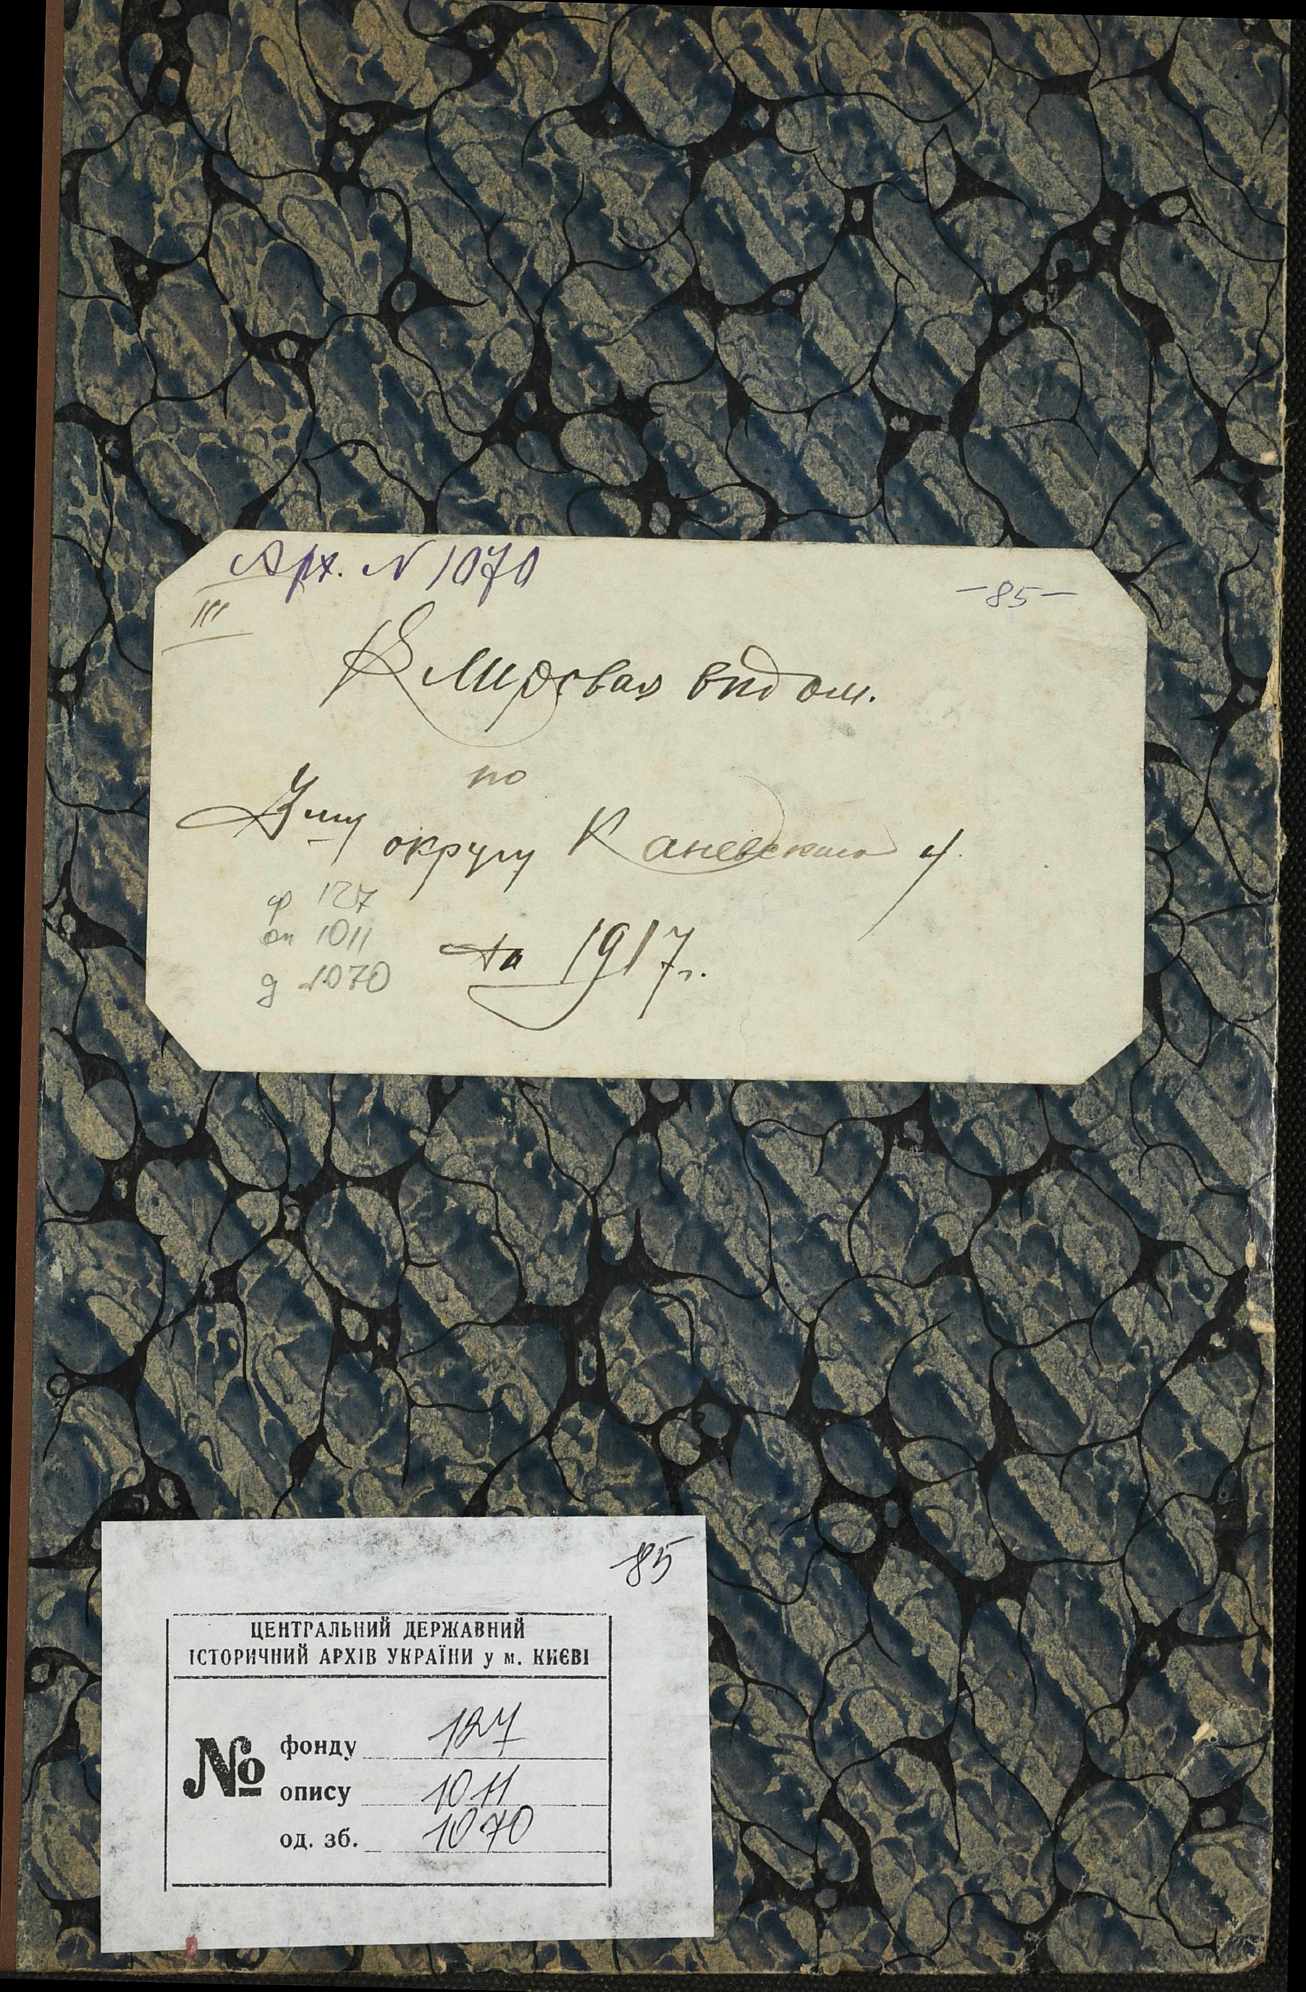 Арх. N 1070
-85-
III
Клировая вѣдом.
по
3му округу Каневскаго у.
ф 127
оп 1011
д 1070
За 1917 г.
85
ЦЕНТРАЛЬНИЙ ДЕРЖАВНИЙ
ІСТОРИЧНИЙ АРХІВ УКРАЇНИ у м. КИЄВІ
№ фонду 127
опису 1011
од. зб. 1070